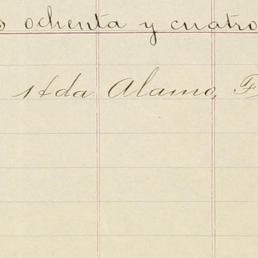 s ochenta y cuatro
Hda Alamo, F